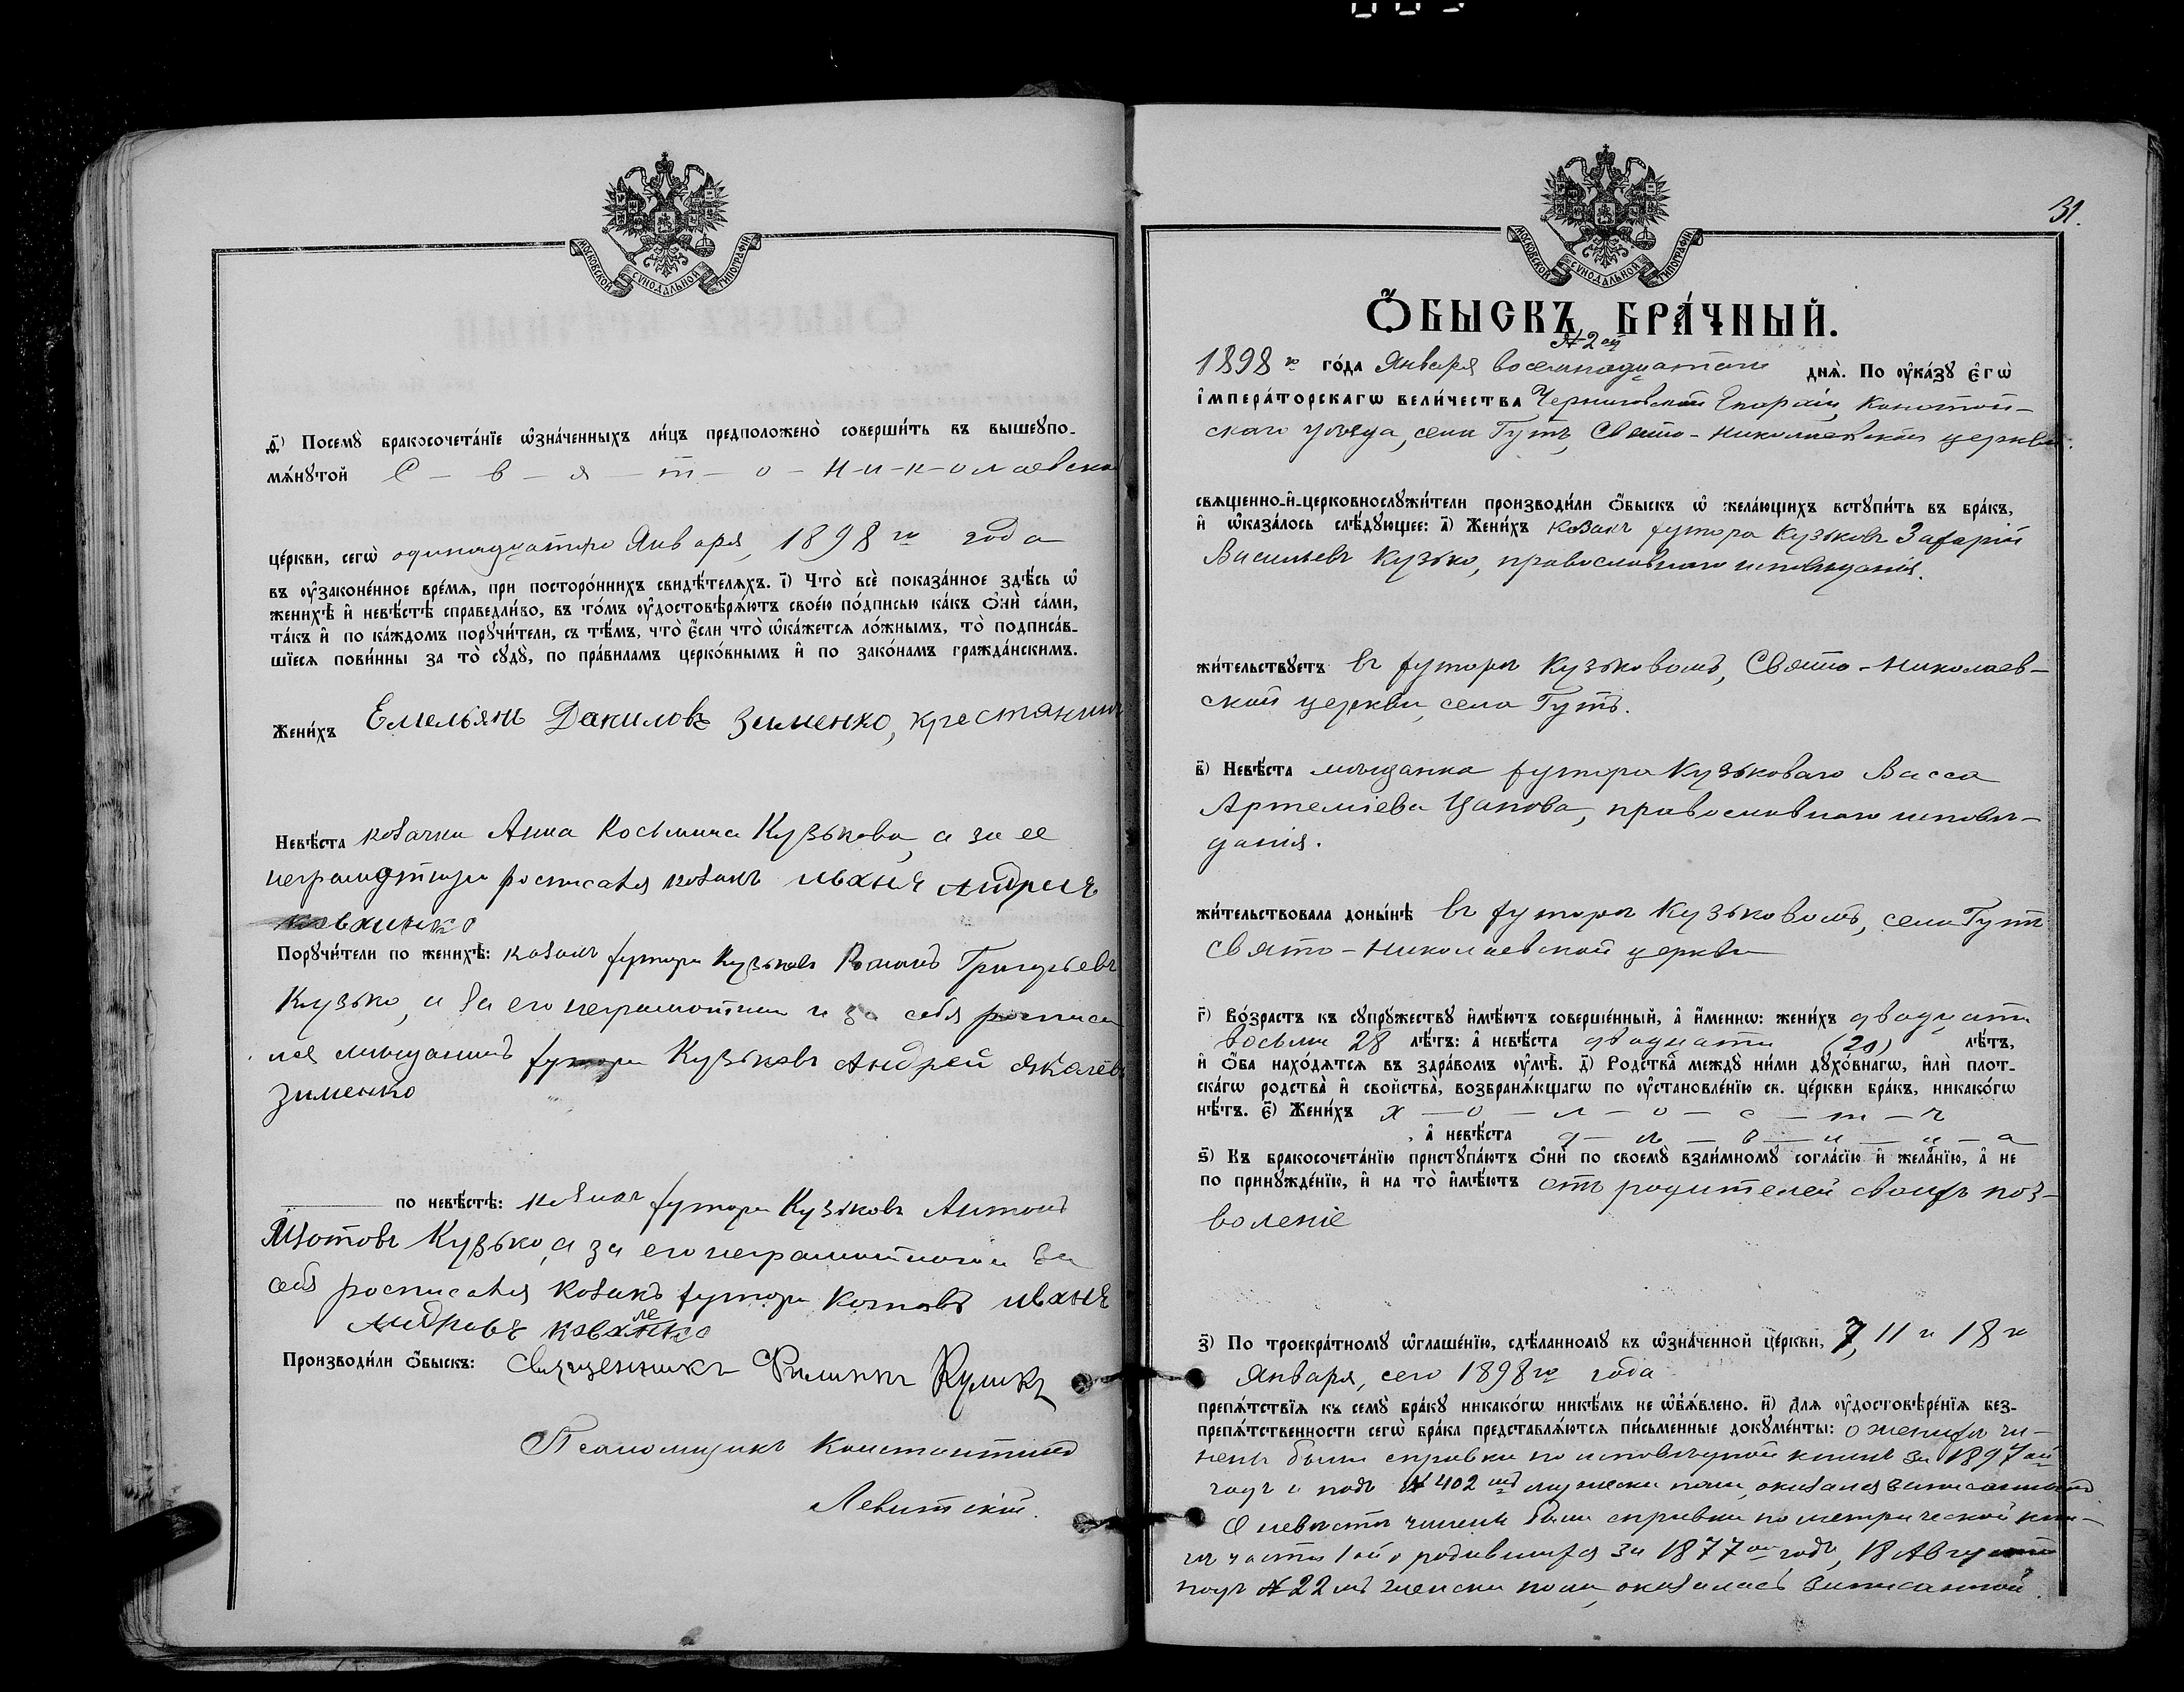 МОСКОВСКОЙ СѴНОДАЛЬНОЙ ТИПОГРАФІИ
ѳ҃) Посемꙋ̀ бракосочета́нїе ѡ҆зна́ченныхъ ли́цъ предположено̀ соверши́ть въ вышеꙋпо-
мѧ́нꙋтой С - в - я - т - о - Н-и-к-о л аевской
це́ркви, сегѡ̀ одинадцатого Января, 1898 го года
въ ᲂу҆законе́нное вре́мѧ, при посторо́ннихъ свидѣ́телѧхъ. і҃) Что̀ всѐ пока́занное здѣ́сь ѡ҆
женихѣ̀ и҆ невѣ́стѣ справедли́во, въ то́мъ ᲂу҆достовѣрѧ́ютъ свое́ю по́дписью ка́къ ѻ҆нѝ са́ми,
та́къ и҆ по ка́ждомъ порꙋчи́тели, съ тѣ́мъ, что̀ є҆́сли что̀ ѡ҆ка́жетсѧ ло́жнымъ, то̀ подписа́в-
шїесѧ пови́нны за то̀ сꙋдꙋ̀, по пра́виламъ церко́внымъ и҆ по зако́намъ гражда́нскимъ.
Жени́хъ Емельянъ Даниловъ Зименко, крестянинъ
Невѣ́ста козачка Анна Косьмина Кузькова, а за ее
неграмотную росписался козакъ
Порꙋчи́тели по женихѣ̀: козакъ хутора Кузьковъ Романъ Григорьевъ
Кузько, а за его неграмотнаго и за себя росписа
лся мещанинъ хутора Кузьковъ Андрей Яковлевъ
Зименко
по невѣ́стѣ: козакъ хутора Кузьковъ Антонъ
Кузько, а за его неграмотнаго и за
себя росписался козакъ хутора
Производи́ли ѻ҆́быскъ: Священникъ Филиппъ Куликъ
Псаломщикъ Константинъ
Левитскій.
31.
МОСКОВСКОЙ СѴНОДАЛЬНОЙ ТИПОГРАФІИ
Ѻ҆́БЫСКЪ БРА́ЧНЫЙ.
№ 2 ой
1898 го го́да Января восемнадцатаго днѧ̀. По ᲂу҆ка́зꙋ є҆гѡ̀
і҆мпера́торскагѡ вели́чества Черниговской Епархіи, Конотоп-
скаго уѣзда, села Гутъ, Свято-Николаевской церкви.
свѧщенно-и҆-церковнослꙋжи́тели производи́ли ѻ҆́быскъ ѡ҆ жела́ющихъ встꙋпи́ть въ бра́къ,
и҆ ѡ҆каза́лось слѣ́дꙋющее: а҃) Жени́хъ козакъ хутора Кузьковъ Захарій
Васильевъ Кузько, православнаго исповѣданія.
жи́тельствꙋетъ въ хуторѣ Кузьковомъ, Свято-Николаев-
ской церкви, села Гутъ.
в҃) Невѣ́ста мѣщанка хутора Кузьковаго Васса
Артеміева Цапова, православнаго исповѣ-
данія.
жи́тельствовала доны́нѣ въ хуторѣ Кузьковомъ, села Гутъ
Свято-Николаевской церкви
г҃) Во́зрастъ къ сꙋпрꙋ́жествꙋ и҆мѣ́ютъ соверше́нный, а҆ и҆́меннѡ: жени́хъ двадцати
восьми 28 лѣ́тъ: а҆ невѣ́ста двадцати (20) лѣ́тъ,
и҆ ѻ҆́ба нахо́дѧтсѧ въ здра́вомъ ᲂу҆мѣ̀. д҃) Родства̀ междꙋ̀ ни́ми дꙋхо́внагѡ, и҆лѝ плот-
ска́гѡ родства̀ и҆ свойства̀, возбранѧ́ющагѡ по ᲂу҆становле́нїю св. це́ркви бра́къ, никако́гѡ
нѣ́тъ. є҃) Жени́хъ х - о - л - о - с - т - ъ
, а҆ невѣ́ста д - ѣ - в - и - ц - а
ѕ҃) Къ бракосочета́нїю приступа́ютъ ѻ҆нѝ по своемꙋ̀ взаи́мномꙋ согла́сїю и҆ жела́нїю, а҆ не
по принꙋжде́нїю, и҆ на то̀ и҆мѣ́ютъ отъ родителей своихъ поз-
воленіе
з҃) По троекра́тномꙋ ѡ҆глаше́нїю, сдѣ́ланномꙋ въ ѡ҆зна́ченной це́ркви, 7, 11 и 18 го
Января, сего 1898 го года
препѧ́тствїѧ къ семꙋ̀ бра́кꙋ никако́гѡ никѣ́мъ не ѡ҆б̾ѧ́влено. и҃) Длѧ ᲂу҆достовѣре́нїѧ без-
препѧ́тственности сегѡ̀ бра́ка представлѧ́ютсѧ пи́сьменные докꙋме́нты: о женихѣ чи-
нены были справки по исповѣдной книгѣ за 1897 ой
годъ и подъ № 402 мъ мужеска пола, оказался записаннымъ
О невѣстѣ чинены были справки по метрической кни-
гѣ части 1 ой о родившихся за 1877 ой годъ, 18 Августа
подъ № 22 мъ женска пола, оказалась записанной.